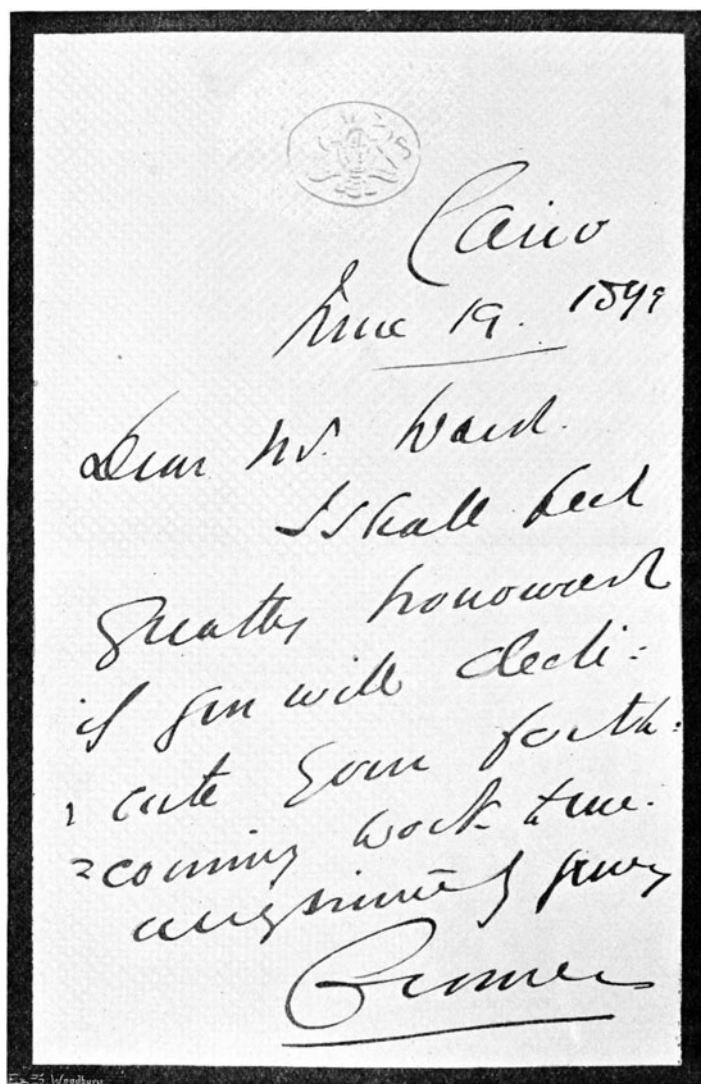 Cairo
June 19. 1899
Dear Mr. Ward.
I shall feel
greatly honoured
if you will dedi=
cate your forth=
=coming work to me.
Very sincerely yours
Cromer